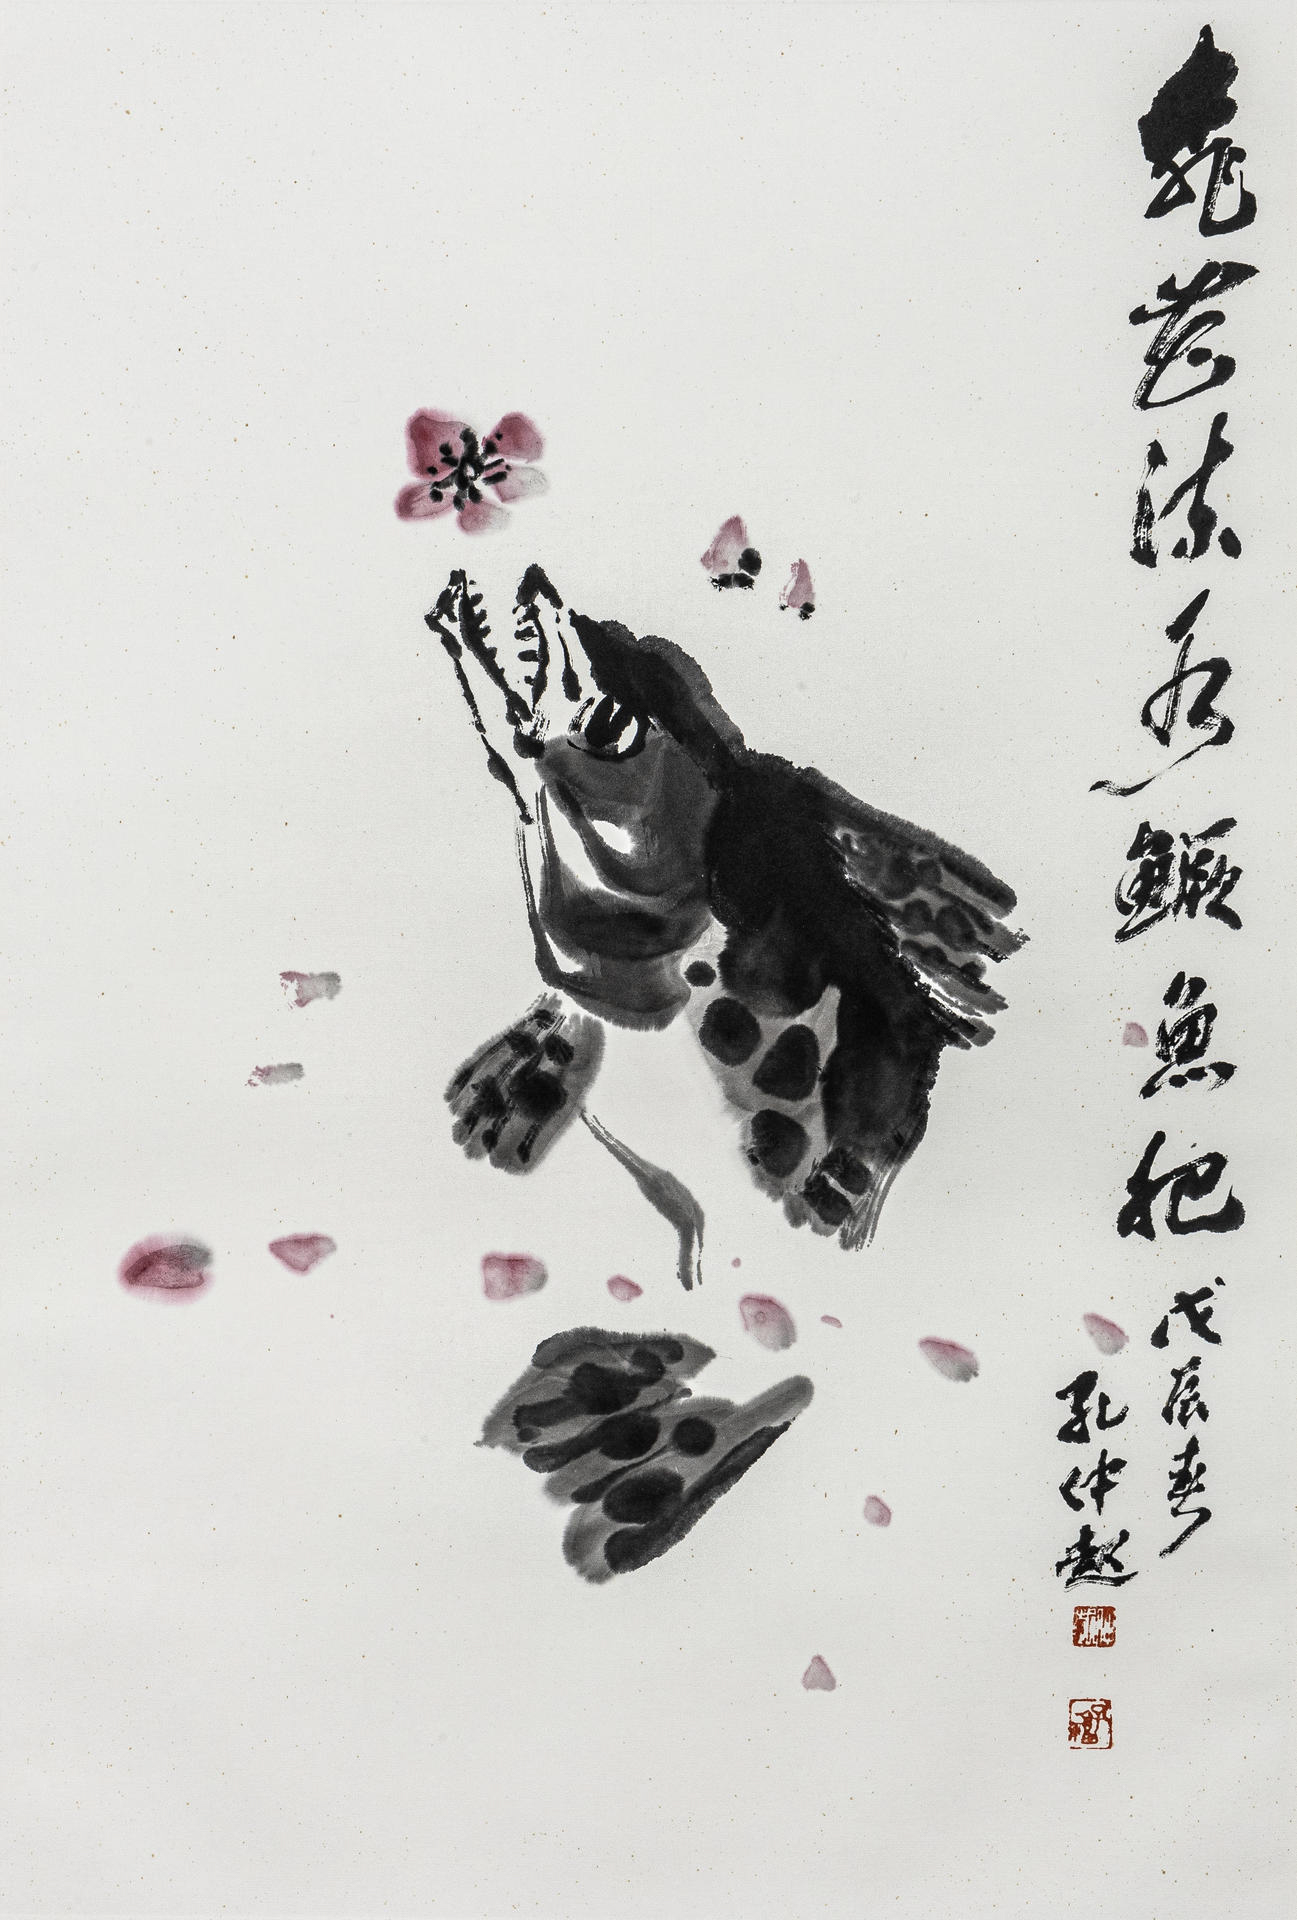 桃花流水鱖魚肥 戊辰春
孔仲起